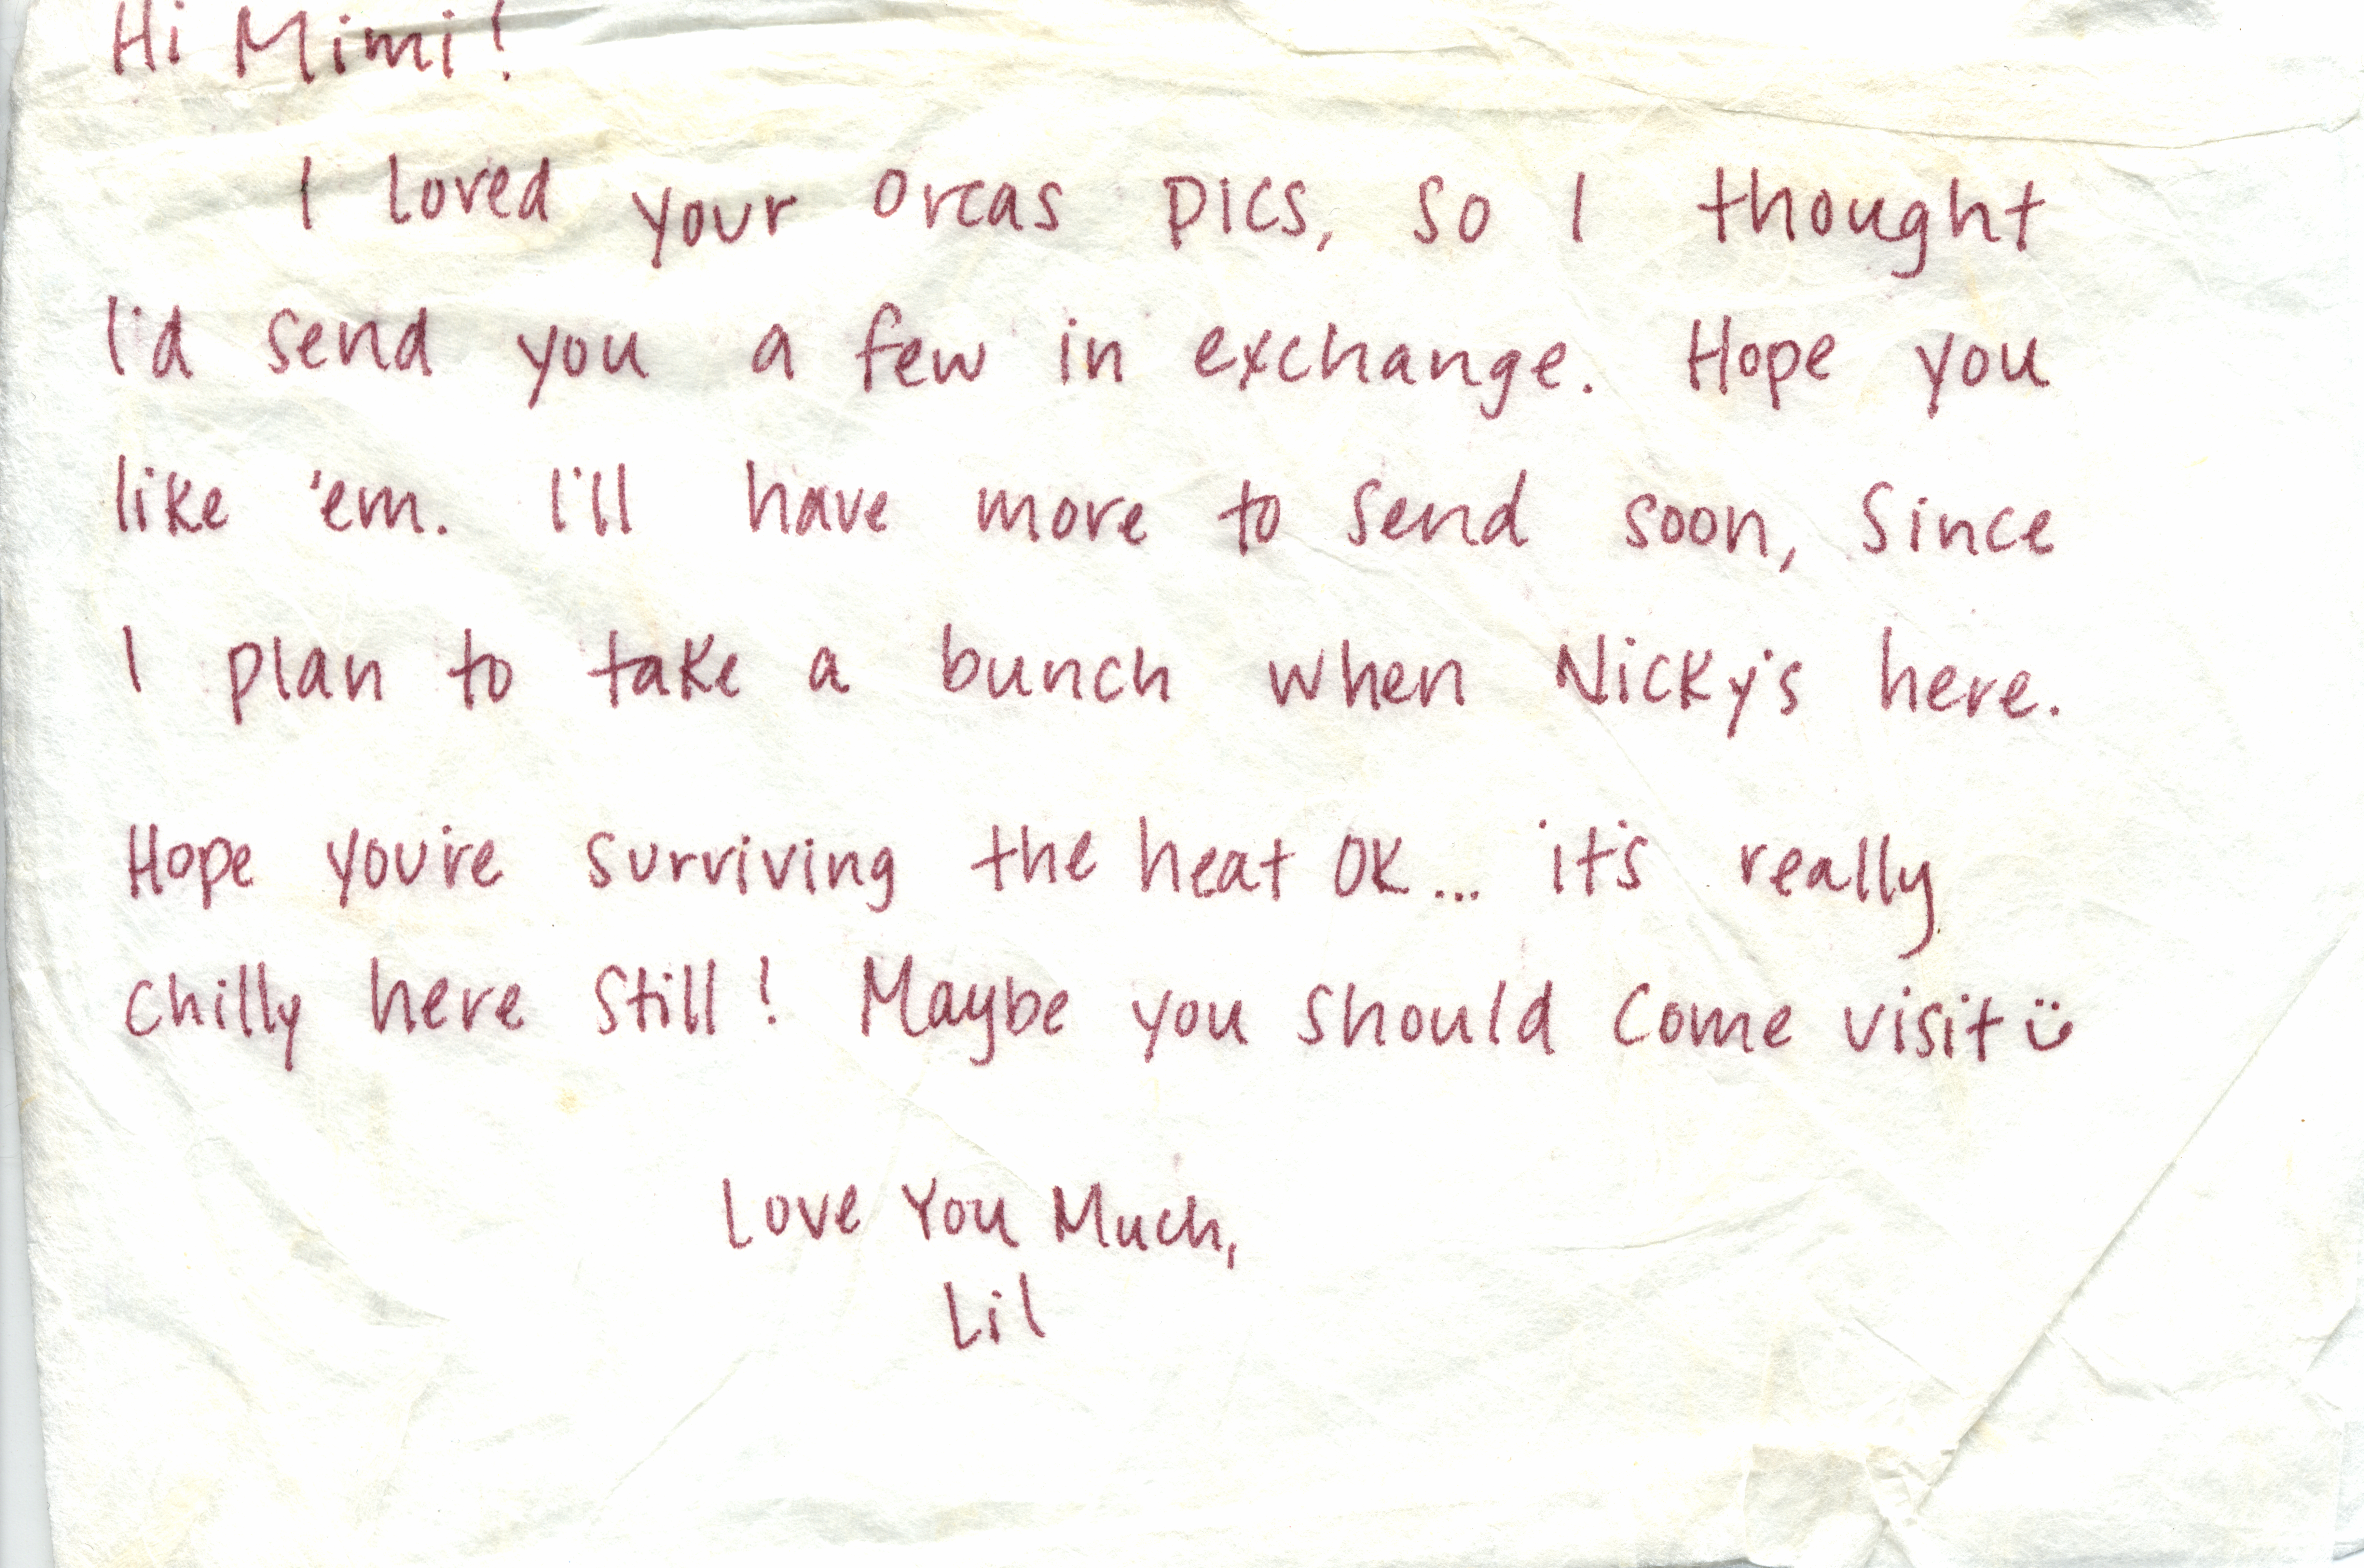 Hi Mimi!
I loved your Orcas pics, so I thought
I'd send you a few in exchange. Hope you
like 'em. I'll have more to send soon, since
I plan to take a bunch when Nicky's here.
Hope you're surviving the heat OK... it's really
chilly here still! Maybe you should come visit ü
Love You Much,
Lil